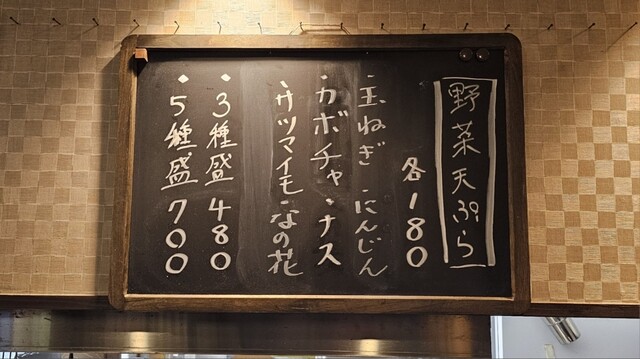 野菜天ぷら
各180
・玉ねぎ ・にんじん
・カボチャ ・ナス
・サツマイモ ・なの花
・3種盛 480
・5種盛 700